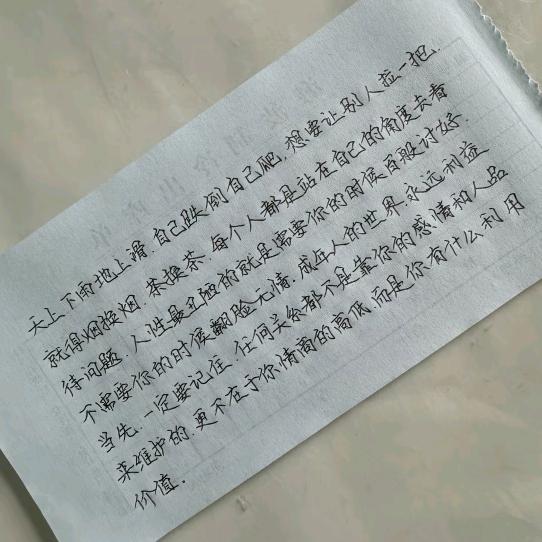 天上下雨地上滑.自己跌倒自己爬.想要让别人拉一把.
就得烟换烟.茶换茶.每个人都是站在自己的角度去看
待问题.人性最丑陋的就是需要你的时候百般讨好.
不需要你的时候翻脸无情.成年人的世界.永远利益
当先.一定要记住.任何关系都不是靠你的感情和人品
来维护的.更不在于你情商的高低.而是你有什么利用
价值.